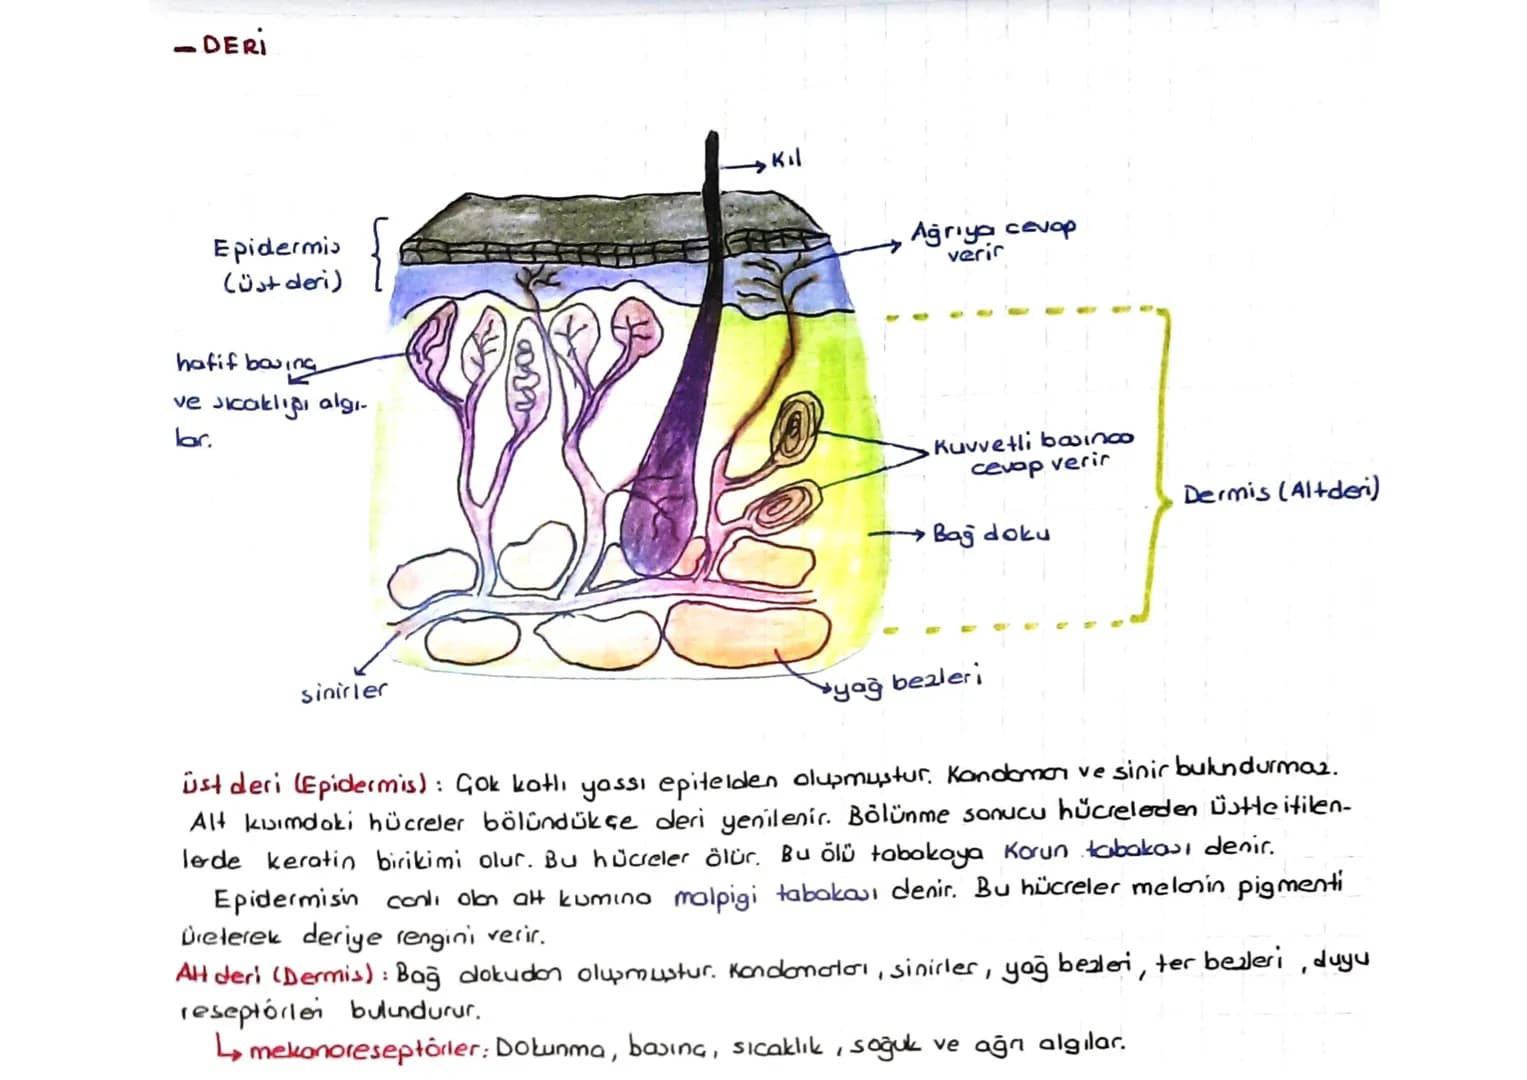 - DERİ
Kıl
Epidermis
(Üst deri)
Ağrıya cevap
verir
hafif basınç
ve sıcaklığı algı-
lar.
Kuvvetli basınca
cevap verir
Dermis (Altderi)
Bağ doku
sinirler
yağ bezleri
Üst deri (Epidermis) : Çok katlı yassı epitelden oluşmuştur. Kandamarı ve sinir bulundurmaz.
Alt kısımdaki hücreler bölündükçe deri yenilenir. Bölünme sonucu hücrelerden üstte itilen-
lerde keratin birikimi olur. Bu hücreler ölür. Bu ölü tabakaya Korun tabakası denir.
Epidermisin canlı olan alt kısmına malpigi tabakası denir. Bu hücreler melanin pigmenti
üreterek deriye rengini verir.
Alt deri (Dermis) : Bağ dokudan oluşmuştur. Kandamarları, sinirler, yağ bezleri, ter bezleri, duyu
reseptörleri bulundurur.
↳ mekanoreseptörler: Dokunma, basınç, sıcaklık, soğuk ve ağrı algılar.